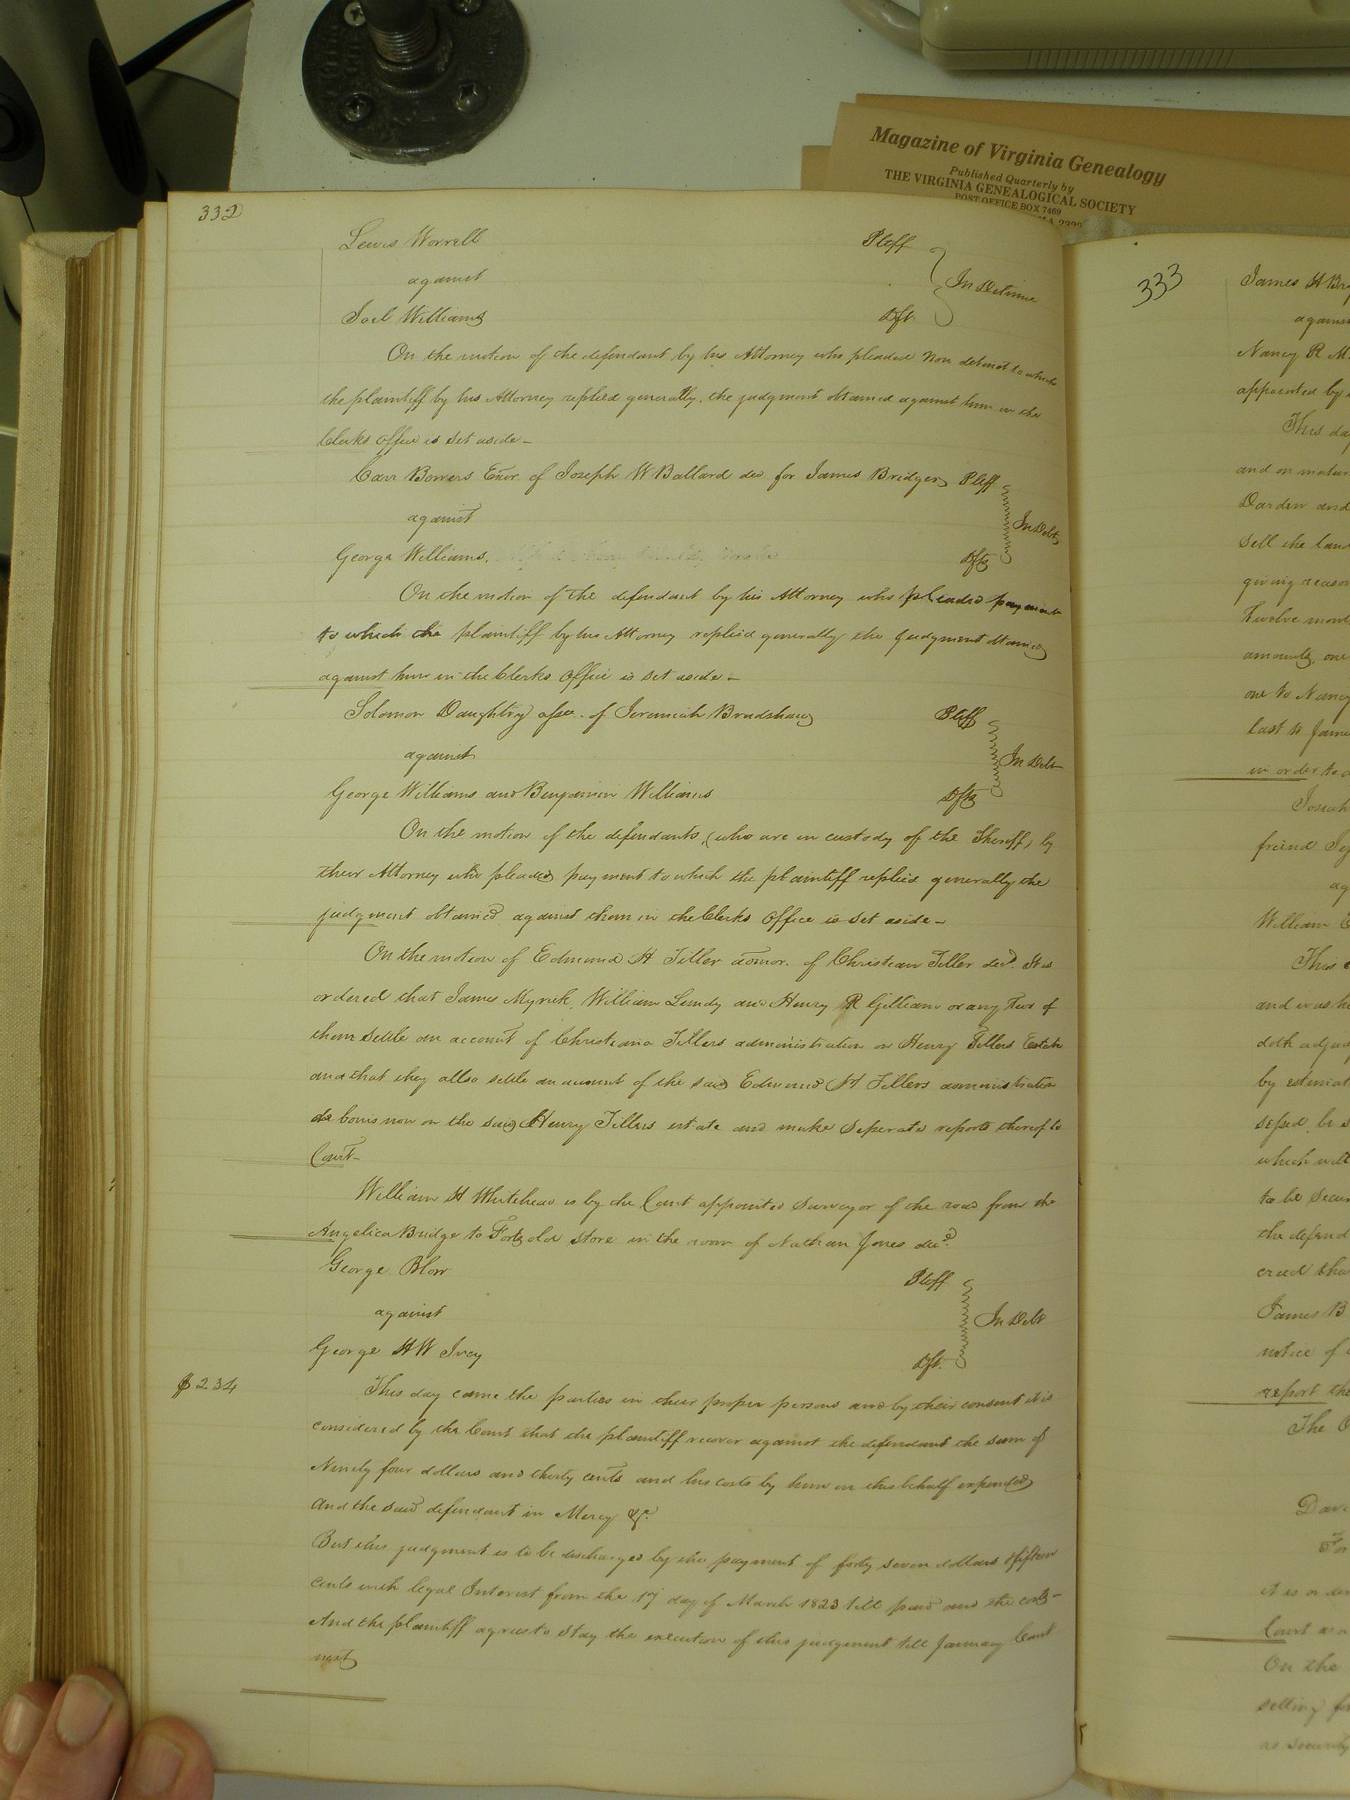 Magazine of Virginia Genealogy
Published Quarterly by
THE VIRGINIA GENEALOGICAL SOCIETY
POST OFFICE BOX 7469
332
Lewis Worrell Pltff
against In Detinue
Joel Williams Dft.
On the motion of the defendant by his Attorney who pleaded Non detinet to which
the plaintiff by his Attorney replied generally, the judgment obtained against him in the
Clerks office is set aside –
Carr Bowers Exor. of Joseph W Ballard dec for James Bridges Pltff
against In Debt
George Williams. Dft
On the motion of the defendant by his Attorney who pleaded payment
to which the plaintiff by his Attorney replied generally the judgment obtained
against him in the Clerks Office is set aside –
Solomon Daughtry assee. of Jeremiah Bradshaw Pltff
against In Debt
George Williams and Benjamin Williams Dfts
On the motion of the defendants, (who are in custody of the Sheriff) by
their Attorney who pleaded payment to which the plaintiff replied generally the
judgment obtained against them in the Clerks Office is set aside –
On the motion of Edmund H Tiller admor. of Christian Tiller decd. It is
ordered that James Myrick, William Lundy and Henry R Gilliam or any two of
them settle an account of Christiana Tillers administration on Henry Tillers Estate
and that they allso settle an account of the said Edmund H Tillers administration
de bonis non on the said Henry Tillers estate and make Seperate reports thereof to
Court –
William H Whitehead is by the Court appointed Surveyor of the road from the
Angelica Bridge to old Store in the room of Nathan Jones decd.
George Blow Pltff
against In Debt
George H W Ivey Dft.
$234
This day came the parties in their proper persons and by their consent it is
considered by the Court that the plaintiff recover against the defendant the sum of
Ninety four dollars and thirty cents and his costs by him in this behalf expended
And the said defendant in Mercy &c.
But this judgment is to be discharged by the payment of forty seven dollars & fifteen
cents with legal Interest from the 17 day of March 1823 till paid and the costs –
And the plaintiff agrees to Stay the execution of this judgement till January Court
next
333
James H
against
Nancy R
appointed by
This day
and on
Darden and
Sell the land
giving
Twelve
amounts, one
one to Nancy
last to
in order to
Josiah
freind
William
This
and
doth
by
be
which
to be
the defend
creed that
James B
notice of
report the
The
it is
Court
On the
setting
as security